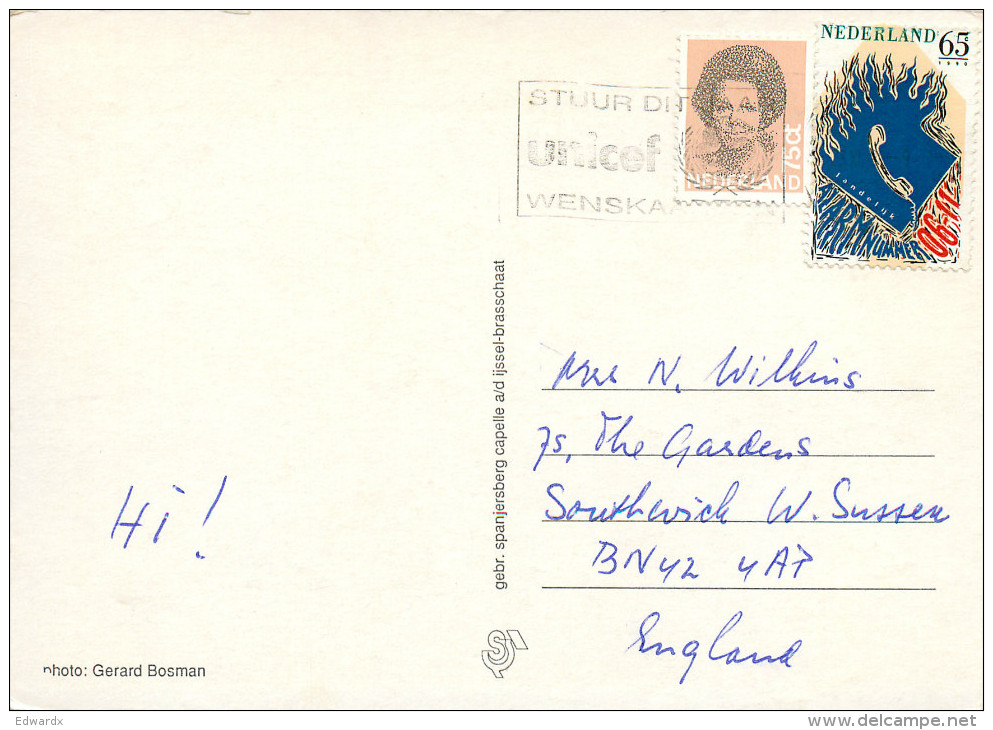 NEDERLAND 65 c
1990
STUUR DIT JAA
unicef
WENSKA
75ct
NEDERLAND
landelijk
ALARMNUMMER 06-11
gebr. spanjersberg capelle a/d ijssel-brasschaat
Mrs N. Wilkins
75, The Gardens
Southwick W. Sussex
BN42 4AP
England
Hi!
photo: Gerard Bosman
Edwardx
www.delcampe.net